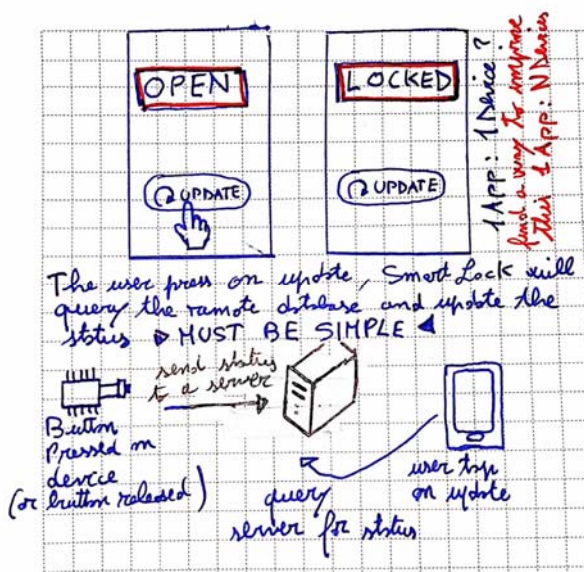 OPEN
UPDATE
LOCKED
UPDATE
1 App : 1 Device ?
find a way to improve
this 1 App : N Devices
The user press on update, Smart Lock will
query the remote database and update the
status ▶ MUST BE SIMPLE ◀
send status
to a server
Button
Pressed on
device
(or button released)
user tap
on update
query
server for status